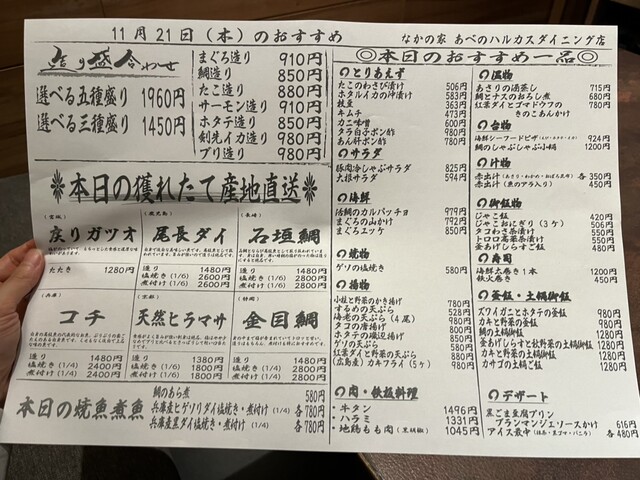 11月21日(木)のおすすめ
なかの家 あべのハルカスダイニング店
造り盛合わせ
選べる五種盛り 1960円
選べる三種盛り 1450円
まぐろ造り 910円
鯛造り 850円
たこ造り 880円
サーモン造り 910円
ホタテ造り 850円
剣先イカ造り 980円
ブリ造り 980円
本日の獲れたて産地直送
(宮城)
戻りガツオ
たたき 1280円
(鹿児島)
尾長ダイ
造り 1480円
塩焼き (1/6) 2600円
煮付け (1/6) 2600円
(長崎)
石垣鯛
造り 1480円
塩焼き (1/6) 2400円
煮付け (1/6) 2400円
(兵庫)
コチ
造り 1480円
塩焼き (1/4) 2400円
煮付け (1/4) 2400円
(京都)
天然ヒラマサ
造り 1380円
塩焼き (1/6) 1800円
煮付け (1/6) 1800円
(静岡)
金目鯛
造り 1480円
塩焼き (1/4) 2800円
煮付け (1/4) 2800円
本日の焼魚煮魚
鯛のあら煮 580円
兵庫産ヒゲソリダイ塩焼き・煮付け (1/4) 各780円
兵庫産黒ダイ塩焼き・煮付け (1/4) 各780円
◎本日のおすすめ一品◎
とりあえず
たこのわさび漬け 506円
ホタルイカの沖漬け 583円
枝豆 363円
キムチ 473円
カニ味噌 600円
タラ白子ポン酢 780円
あん肝ポン酢 780円
サラダ
豚肉冷しゃぶサラダ 825円
大根サラダ 594円
海鮮
活鯛のカルパッチョ 979円
まぐろの山かけ 792円
まぐろユッケ 850円
焼物
ゲソの塩焼き 580円
揚物
小柱と野菜のかき揚げ 780円
すずめの天ぷら 528円
海老の天ぷら(4尾) 900円
タコの唐揚げ 800円
ホタテの磯辺揚げ 850円
ゲソの天ぷら 580円
紅葉ダイと野菜の天ぷら 880円
(広島産)カキフライ(5ヶ) 980円
肉・鉄板料理
・牛タン 1496円
・ハラミ 1331円
・地鶏もも肉(黒胡椒) 1045円
温物
あさりの酒蒸し 715円
鯛とナスのおろし煮 680円
紅葉ダイとゴマドウフの 780円
きのこあんかけ
台物
海鮮シーフードピザ 924円
鯛のしゃぶしゃぶ小鍋 1200円
汁物
赤出汁(あさり・わかめ・おぼろ昆布) 各350円
赤出汁(魚のアラ入り) 450円
御飯物
じゃこ飯 420円
じゃこおにぎり(3ヶ) 506円
タコわさ茶漬け 550円
トロロ湯葉茶漬け 550円
釜あげしらすご飯 580円
寿司
海鮮太巻き1本 1200円
鉄火巻き 450円
釜飯・土鍋御飯
ズワイガニとホタテの釜飯 980円
カキと野菜の釜飯 980円
鯛の土鍋御飯 1280円
釜あげしらすと飯の土鍋御飯 1280円
カキと野菜の土鍋御飯 1280円
カサゴの土鍋御飯 1280円
デザート
黒ごま豆腐プリン
ブランマンジェソースかけ 616円
アイス最中(抹茶・黒ゴマ・バニラ) 各480円